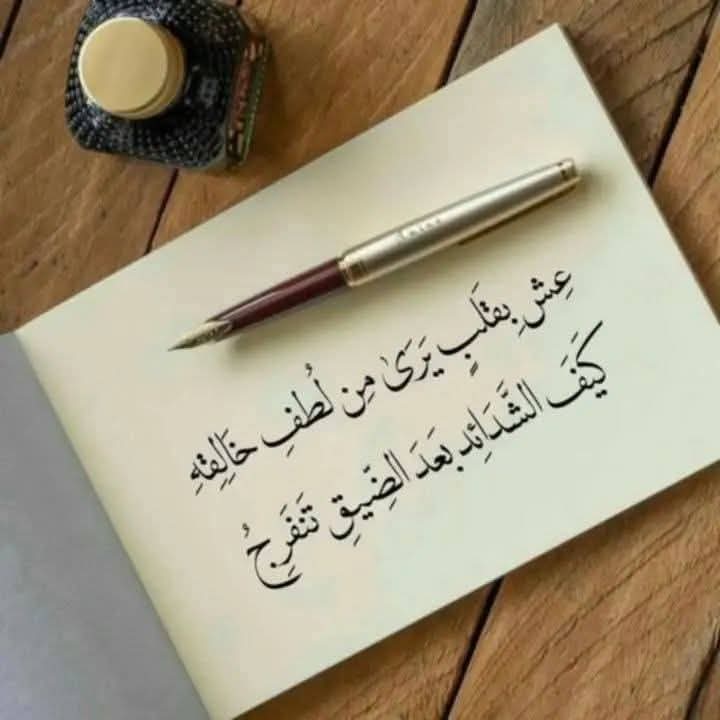 عِش بِقَلبٍ يَرَىٰ مِن لُطفِ خَالِقِهِ
كَيفَ الشَّدَائِد بَعدَ الضِّيقِ تَنفَرِجُ